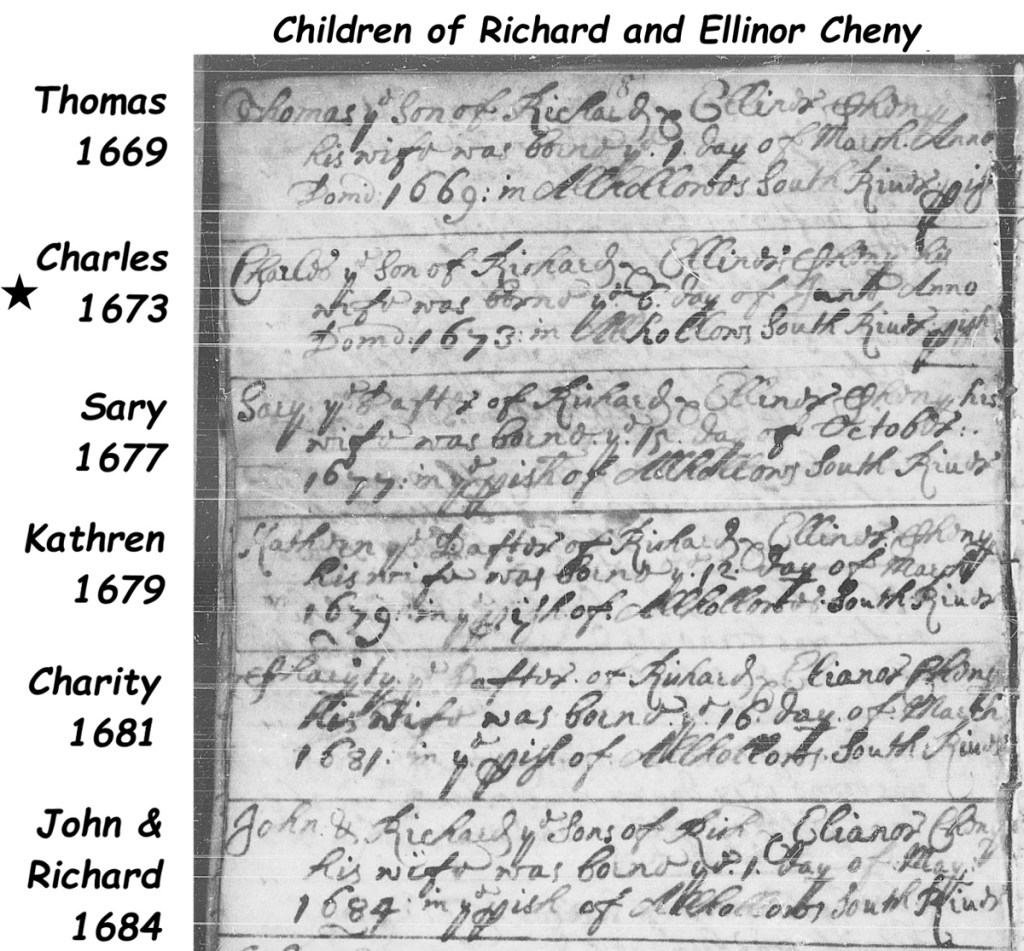 Children of Richard and Ellinor Cheny
Thomas
1669
Thomas yᵉ Son of Richard & Ellinor Cheny
his wife was borne yᵉ 1 day of March Anno
Domi: 1669: in Allhollows South River pish
Charles
1673
Charles yᵉ Son of Richard & Ellinor Cheny his
wife was borne yᵉ 6. day of Anno
Domi: 1673: in Allhollows South River pish
Sary
1677
Sary yᵉ Dafter of Richard & Ellinor Cheny his
wife was borne yᵉ 15. day of October:
1677: in yᵉ pish of Allhollows South River
Kathren
1679
Kathren yᵉ Dafter of Richard & Ellinor Cheny
his wife was borne yᵉ 12. day of March
1679: in yᵉ pish of Allhollows South River
Charity
1681
yᵉ Dafter of Richard & Elianor Cheny
his wife was borne yᵉ 16 day of March
1681: in yᵉ pish of Allhollows South River
John &
Richard
1684
John & Richard yᵉ Sons of Rich & Elianor Cheny
his wife was borne yᵉ 1. day of May
1684: in yᵉ pish of Allhollows South River